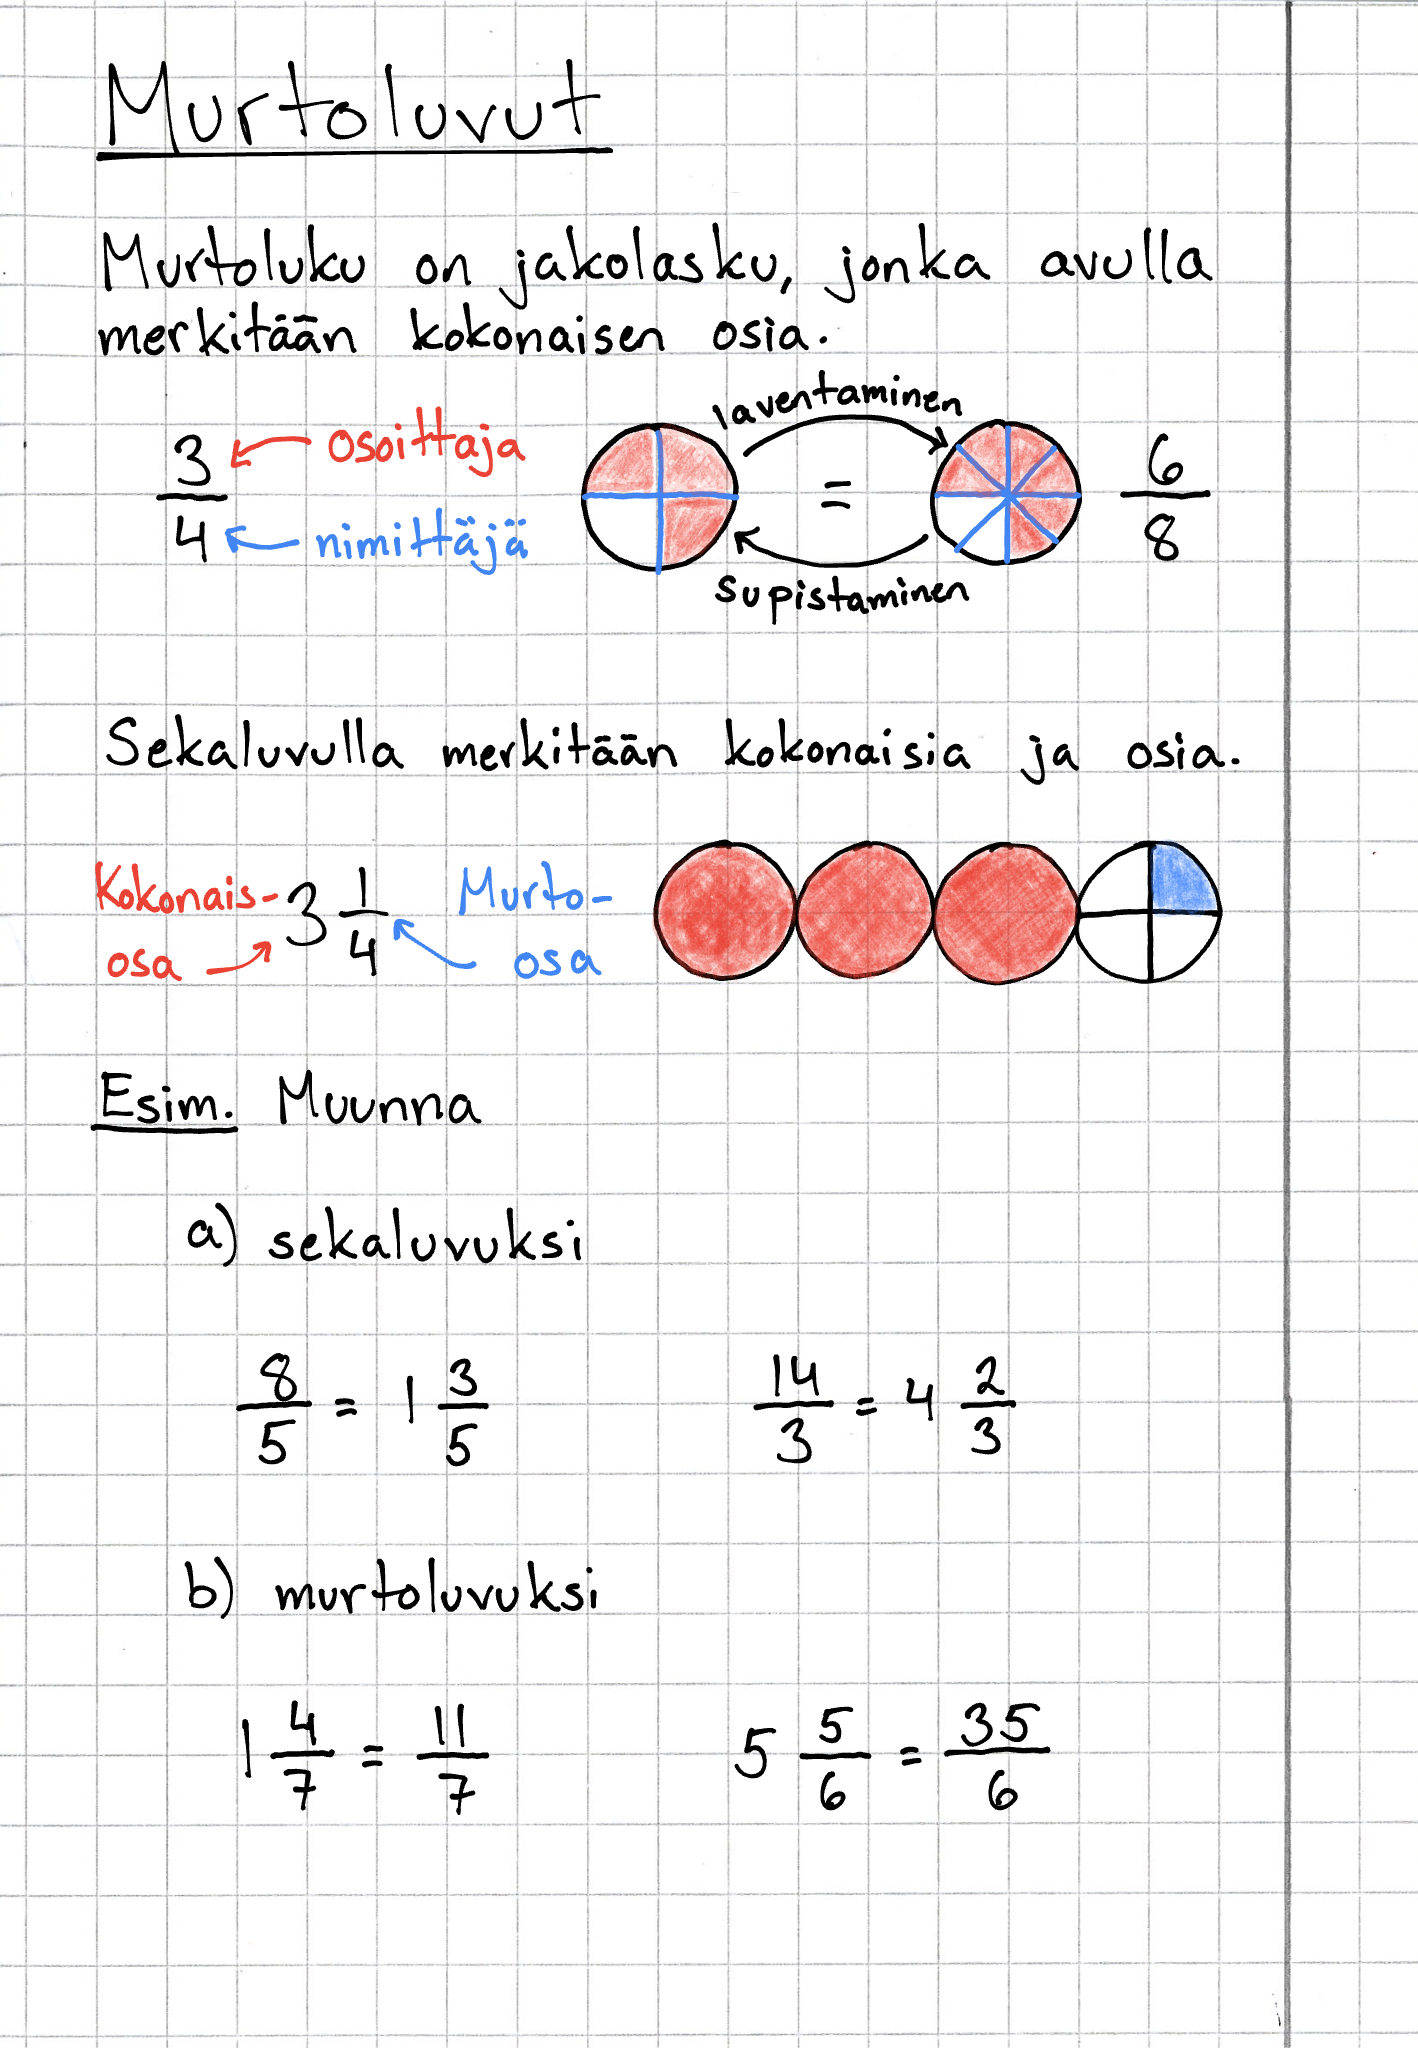 Murtoluvut
Murtoluku on jakolasku, jonka avulla
merkitään kokonaisen osia.
3/4 osoittaja nimittäjä
laventaminen
=
supistaminen
6/8
Sekaluvulla merkitään kokonaisia ja osia.
Kokonais-
osa
3 1/4
Murto-
osa
Esim. Muunna
a) sekaluvuksi
8/5 = 1 3/5
14/3 = 4 2/3
b) murtoluvuksi
1 4/7 = 11/7
5 5/6 = 35/6